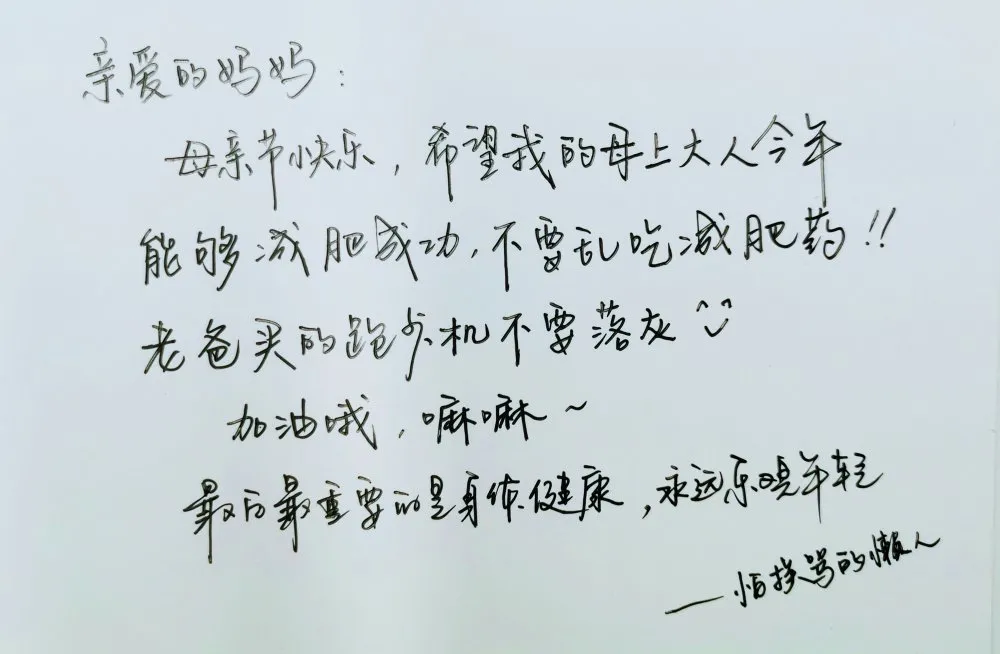 亲爱的妈妈：
母亲节快乐，希望我的母上大人今年
能够减肥成功，不要乱吃减肥药！！
老爸买的跑步机不要落灰^‿^
加油哦，嘛嘛～
最后最重要的是身体健康，永远乐观年轻
——怕挨骂的懒人